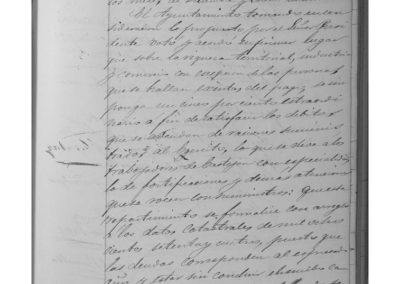 El Ayuntamiento tomando en con
sideracion lo propuesto por el Señor Presi
dente votó y acordó en primer lugar
que sobre la riqueza territorial, industria
y comercio con escepcion de las personas
que se hallan exentas del pago, se im
ponga un cinco por ciento estraordi
nario a fin de satisfacer los débitos
que se adeudan de raciones suminis
tradas al Ejército, lo que se debe a los
trabajadores de Castejon con especialidad
la de fortificaciones y demas atencion
que se rocen con suministros: Que este
repartimiento se formalice con arreglo
a los datos catastrales de mil ocho
cientos setenta y cuatro, puesto que
las deudas corresponden al espresado
año y estar sin concluir